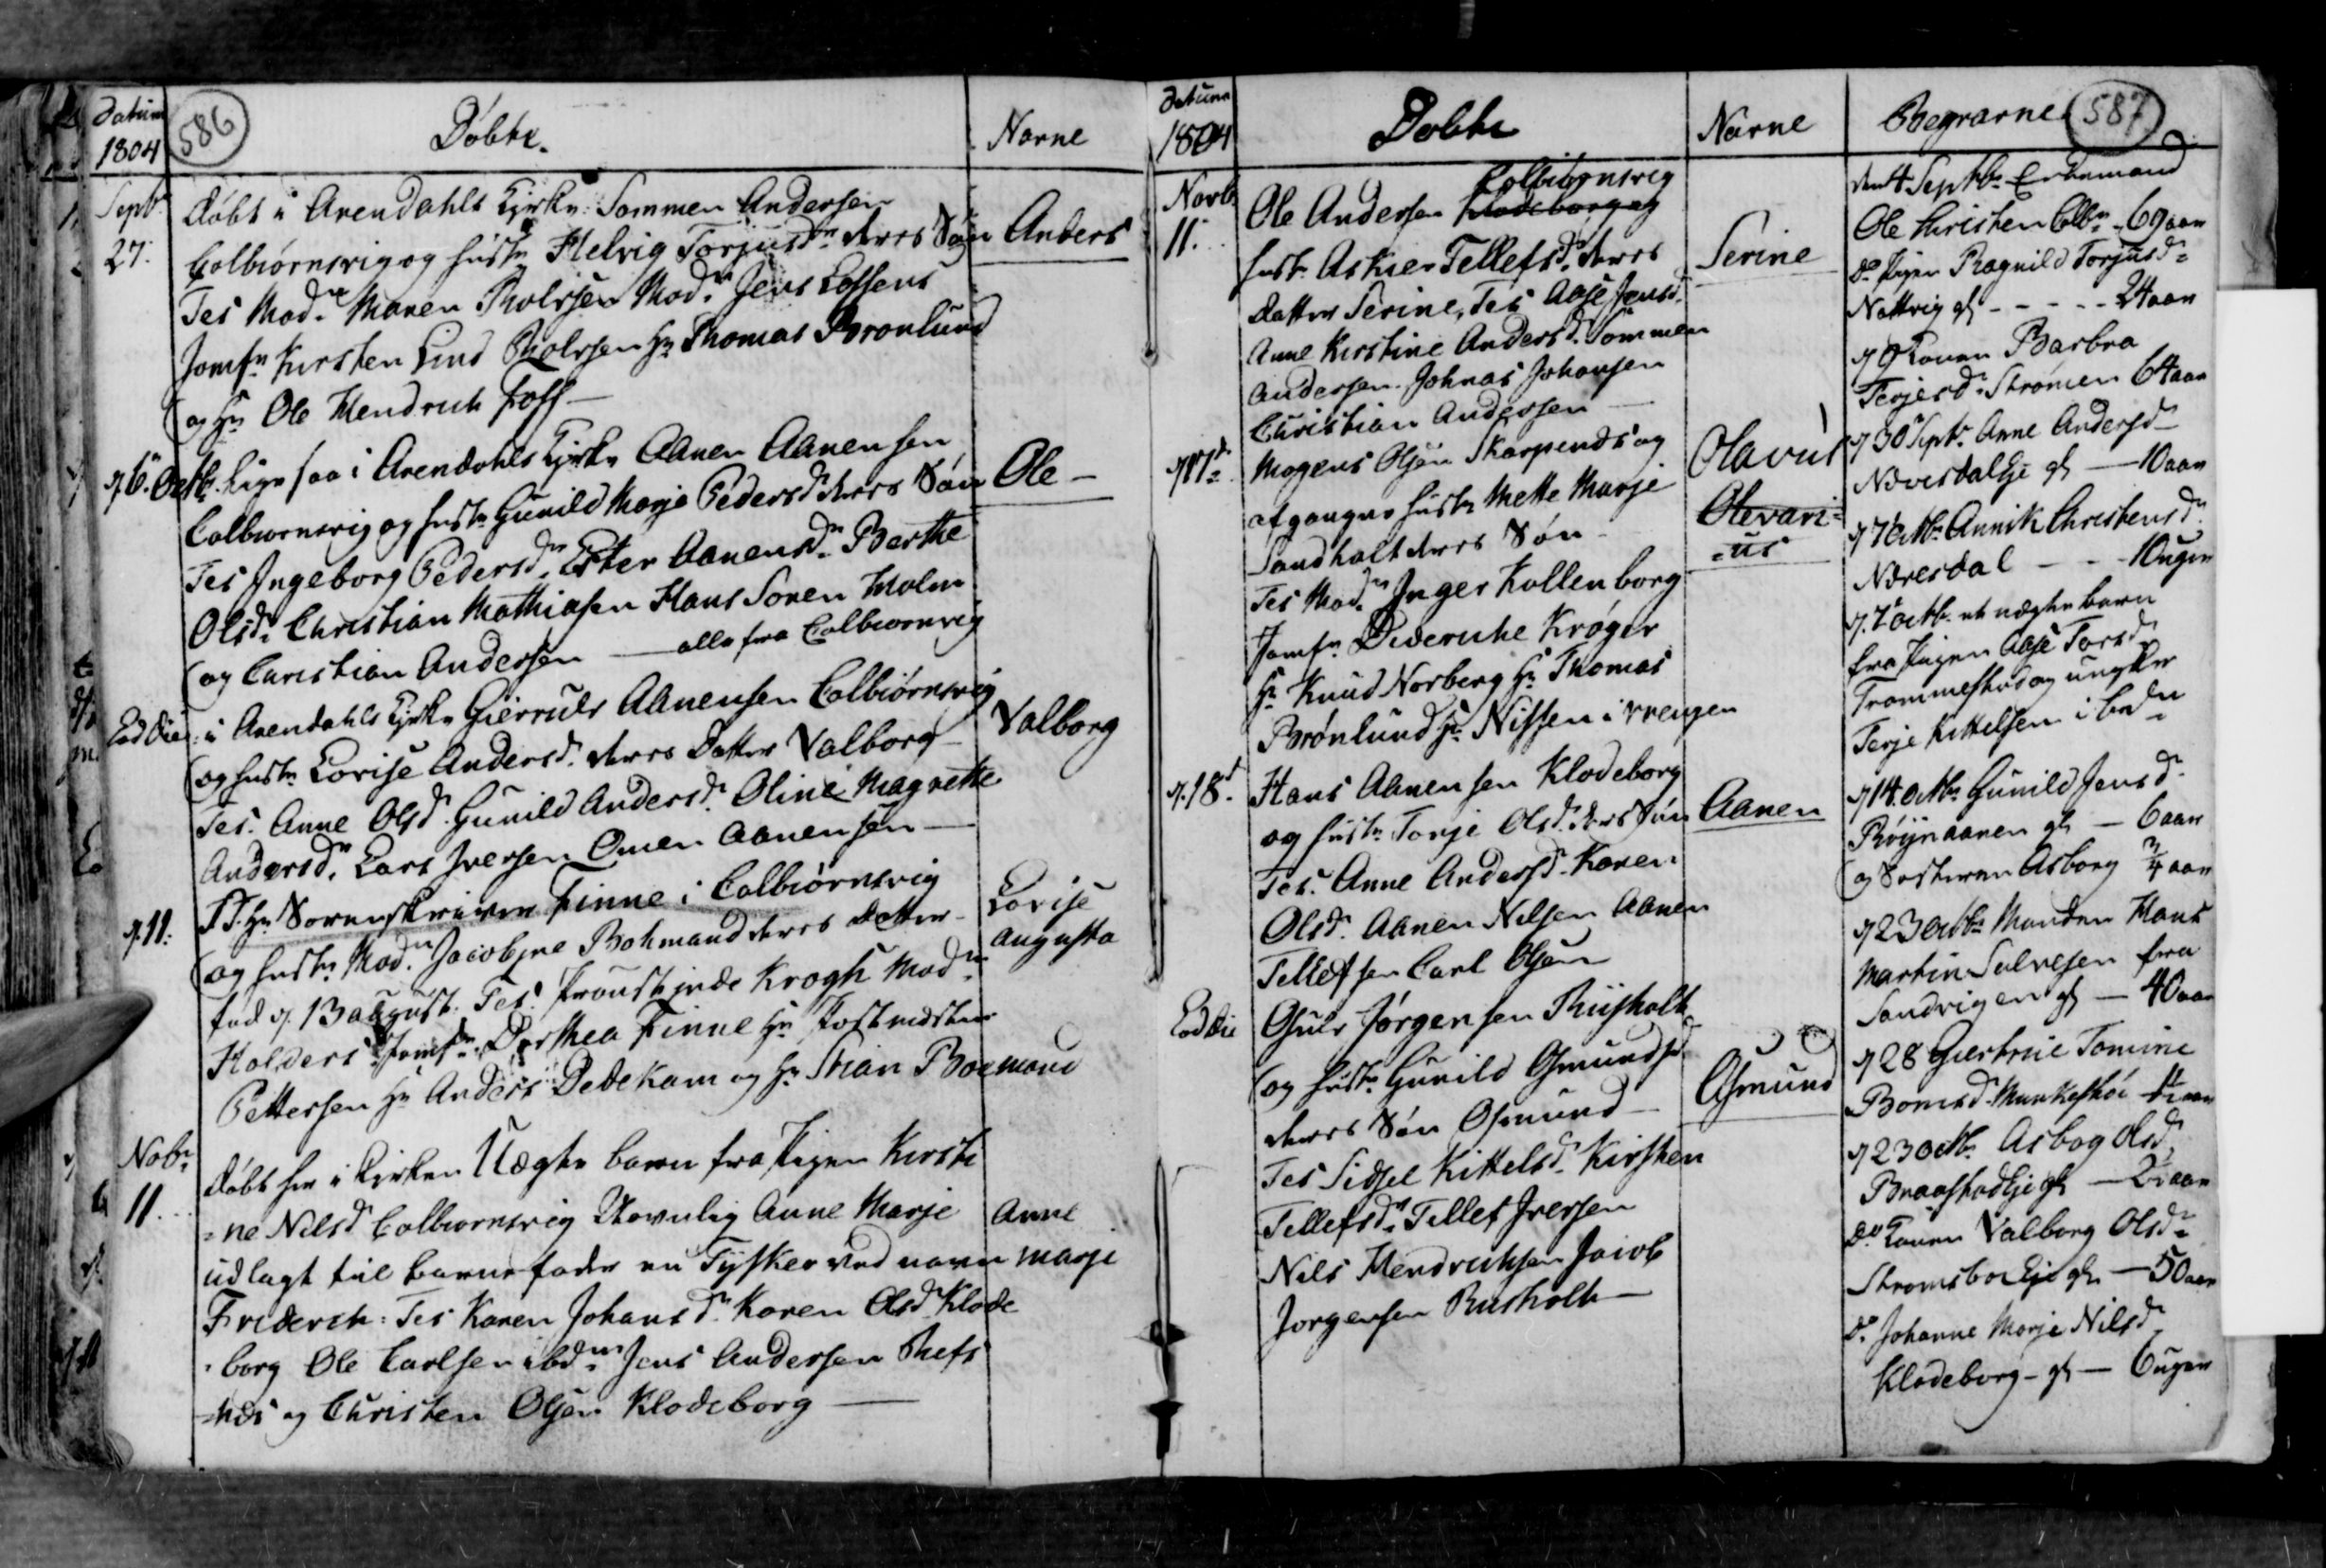 Datum
1804
586
Døbte.
Navne
Septbr
27.
døbt i Arendahls Kirke Sommen Andersen
Colbiørnsvig og Hustr Helvig Torjusdr deres Søn
Anders
Tes Madme Maren Rolvsen Madme Jens Lassens
Jomfr Kirsten Lind Rolvsen Hr Thomas Brønlund
og Hr Ole Hendrich Foss
d. 6. Octb. ligesaa i Arendahls Kirke Aanen Aanensen
Ole
Colbiørnsvig og Hustr Gunild Marje Pedersdr deres Søn
Tes Ingeborg Pedersdr Ester Aanensdr Berthe
Olsdr Christian Mathiasen Hans Soren Malm
og Christian Andersen alle fra Colbiørnsvig
Eod die i Arendahls Kirke Gieruls Aanensen Colbiørnsvig
Valborg
og Hustr Lovise Andersdr deres Datter Valborg
Tes. Anne Olsdr Gunild Andersdr Oline Magrethe
Andersdr Lars Iversen Omen Aanensen
d. 11.
S.T. Hr Sorenskriver Finne i Colbiørnsvig
Lovise
og Hustr Madme Jacobine Bohmand deres Datter
Augusta
fød d. 13 august. Tes. Proustinde Krogh Madme
Holders Jomfr Dorthea Finne Hr Postmester
Pettersen Hr Anders Dedekam og Hr Stian Boemand
Nobr
11.
døbt her i Kirken Uægte barn fra Pigen Kirsti
=ne Nilsdr Colbiørnsvig Navnlig Anne Marje
Anne
udlagt til barnefader en Tysker ved navn
Marje
Friderich: Tes Karen Johansdr Karen Olsdr Klode
=borg Ole Carlsen ibdm Jens Andersen Refs
=næs og Christen Olsen Klodeborg
Datum
1804
Døbte
Navne
Begravne
587
Novb
11.
Colbiønsvig
Ole Andersen Klodeborg og
Hustr Askier Tellefsdr deres
Serine
Datter Serine, Tes Aase Jensdr
Anne Kirstine Andersdr Sommen
Andersen Johnas Johansen
Christian Andersen
d 17d
Mogens Olsen Skarpends og
Olavus
afganges Hustr Mette Marje
Olevari=
Sandholt deres Søn
=us
Tes Madme Inger Kallenborg
Jomfr Dideriche Krøger
Hr Knud Norberg Hr Thomas
Brønlund Hr Nissen i Vrengen
d. 18.
Hans Aanensen Klodeborg
og Hustr Torje Olsdr deres Søn
Aanen
Tes. Anne Andersdr Karen
Olsdr Aanen Nilsen Aanen
Tellefsen Carl Olsen
Eod die
Guls Jørgensen Riisholt
og Hustr Gunild Osmundsdr
Osmund
deres Søn Osmund
Tes Sidsel Kittelsdr Kirsten
Tellefsdr Tellef Iversen
Nils Hendrichsen Jacob
Jørgensen Rusholt
den 4 Septbr Enkemand
Ole Christen 69 aar
Do Pigen Ragnild Torjusdr
Nattvig gl - - - - 24 aar
d 9 Konen Barbra
Terjesdr Strømen 64 aar
d 30 Septr Anne Andersdr
Næversdal Eje gl — 10 aar
d 7 octbr Annik Christensdr
Næresdal - - 10 uger
d. 7 octb. et uægte barn
fra Pigen Aase Torsdr
Trommestad og ungkar
Terje Kittelsen ibdm
d 14. octbr Gunild Jensdr
Røynaanen gl — 6 aar
og Søsteren Asborg 3/4 aar
d 23 octbr Manden Hans
Martin Salvesen fra
Sandvigen gl — 40 aar
d 28 Giertrue Tomine
d 23 octbr Asbog Olsdr
Braastad Eje gl — 2½ aar
Do Konen Valborg Olsdr
Strømsboe Eje gl — 50 aar
Do Johanne Marje Nilsdr
Klodeborg - gl — 6 uger